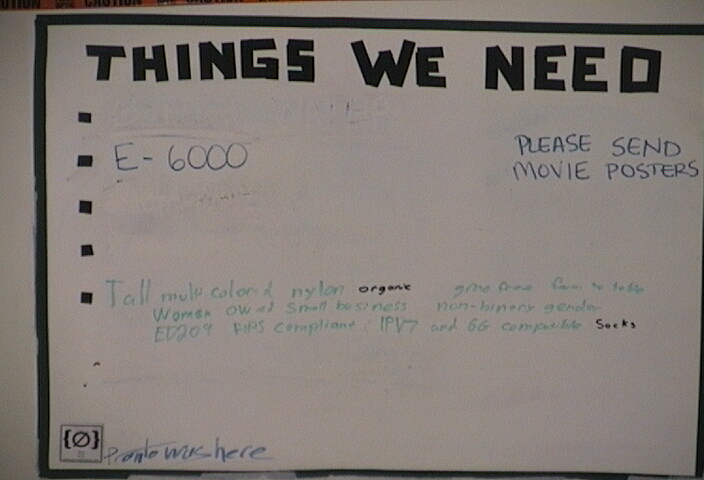 CAUTION CAUTION
THINGS WE NEED
E-6000
PLEASE SEND
MOVIE POSTERS
Tall multi colored nylon organic gmo free farm to table
Women owned small business non-binary gender
ED209 FIPS compliant IPV7 and 6G compatible Socks
{Ø}
Pronto was here